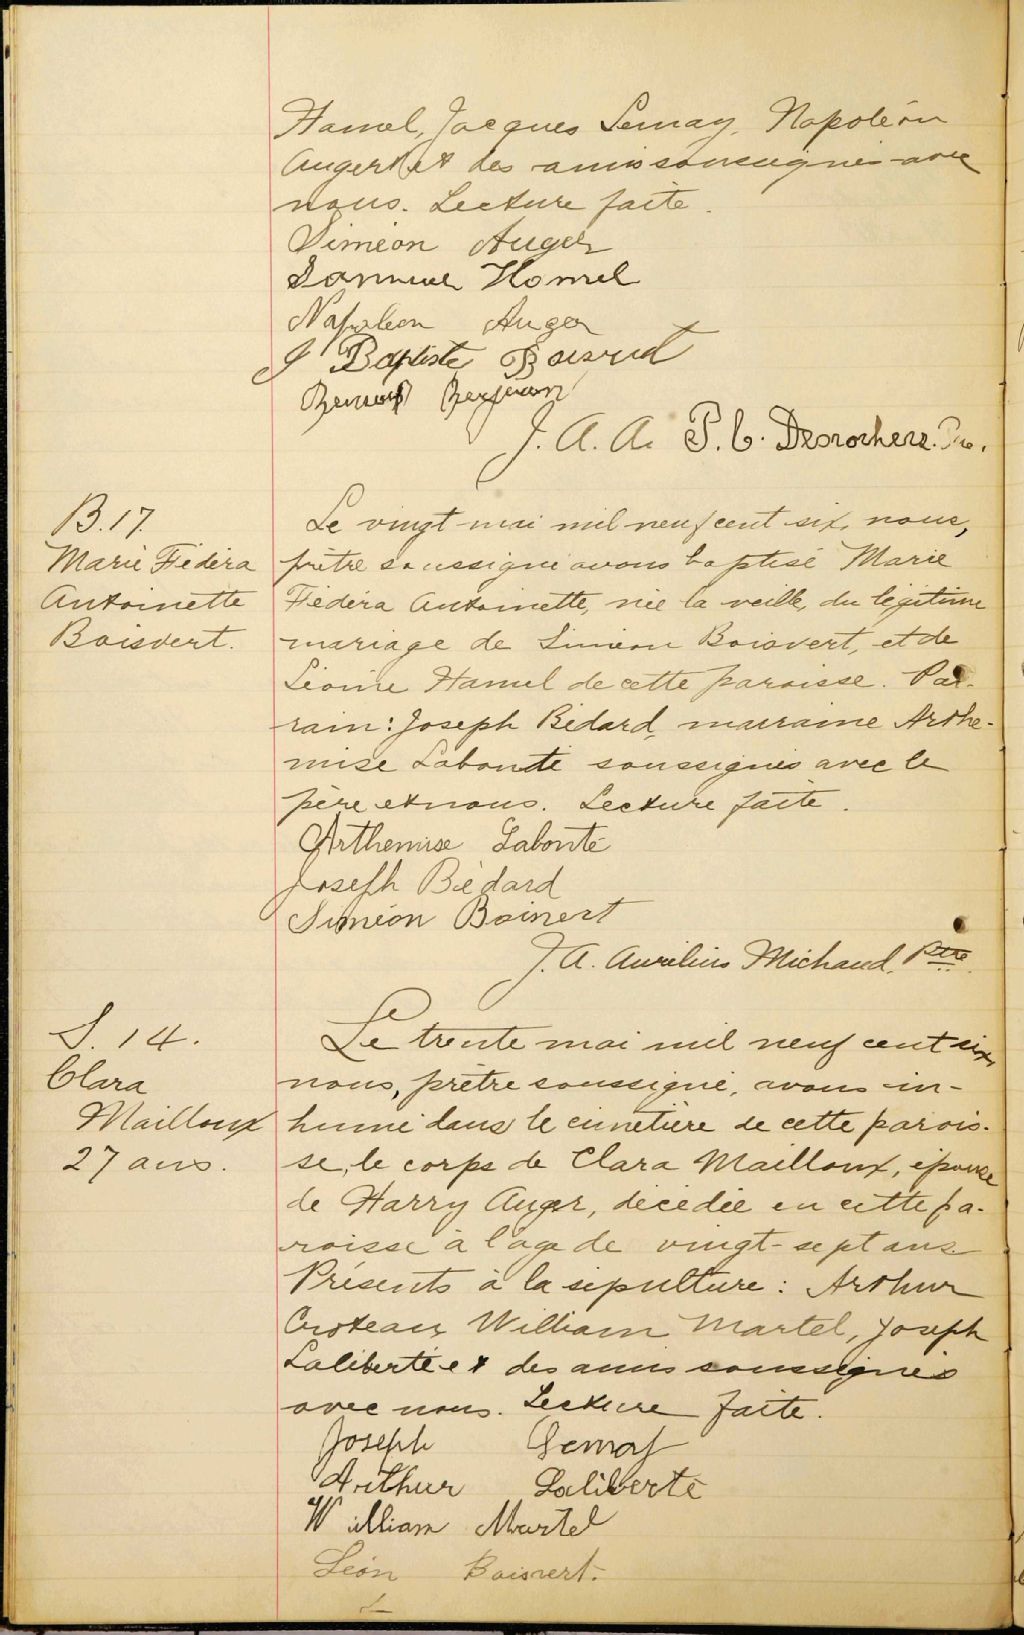 Hamel, Jacques Lemay, Napoléon
Auger et des amis soussignés avec
nous. Lecture faite.
Siméon Auger
Samuel Hamel
Napoleon Auger
J Baptiste Boisvert
J. A. A. P. C. Desrochers. Ptre.
B. 17.
Marie Fédéra
Antoinette
Boisvert.
Le vingt mai mil neuf cent six, nous,
prêtre soussigné avons baptisé Marie
Fédéra Antoinette, née la veille, du légitime
mariage de Siméon Boisvert, et de
Léonie Hamel de cette paroisse. Par-
rain: Joseph Bédard, marraine Arthe-
mise Labonté soussignés avec le
père et nous. Lecture faite.
Arthemise Labonté
Joseph Bédard
Siméon Boisvert
J. A. Aurélius Michaud, Ptre
S. 14.
Clara
Mailloux
27 ans.
Le trente mai mil neuf cent six,
nous, prêtre soussigné, avons in-
humé dans le cimetière de cette parois-
se, le corps de Clara Mailloux, épouse
de Harry Auger, décédée en cette pa-
roisse à l'age de vingt-sept ans
Présents à la sépulture: Arthur
Croteau, William Martel, Joseph
Laliberté et des amis soussignés
avec nous. Lecture faite.
Joseph Lemay
Arthur Laliberté
William Martel
Léon Boisvert.